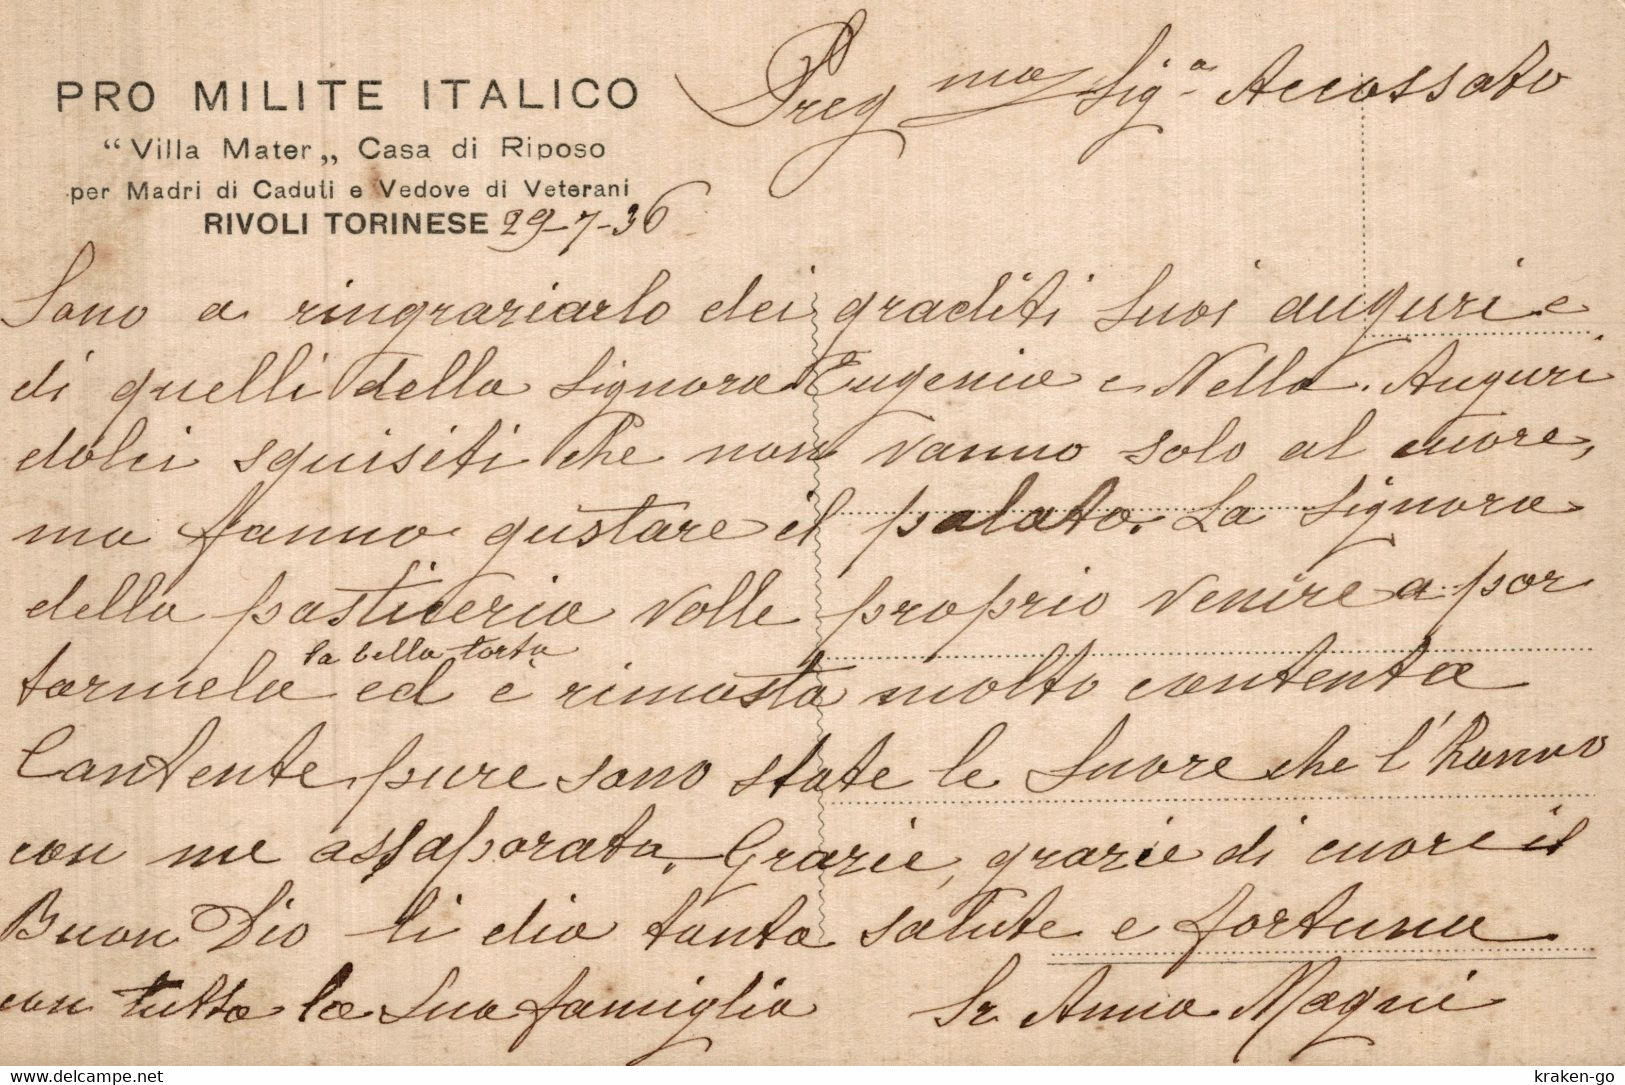 PRO MILITE ITALICO
“Villa Mater„ Casa di Riposo
per Madri di Caduti e Vedove di Veterani
RIVOLI TORINESE 29-7-36
Preg ma Sig.a Accossato
Sono a ringraziarlo dei graditi Suoi auguri e
di quelli della Signora Eugenia e Nella. Auguri
dolci squisiti che non vanno solo al cuore,
ma fanno gustare il palato. La Signora
della pasticeria volle proprio venire a por
la bella torta
tarmela ed è rimasta molto contenta
Contente pure sono state le Suore che l'hanno
con me assaporata. Grazie, grazie di cuore il
Buon Dio li dia tanta salute e fortuna
con tutta la Sua famiglia Sr. Anna Magni
www.delcampe.net
kraken-go